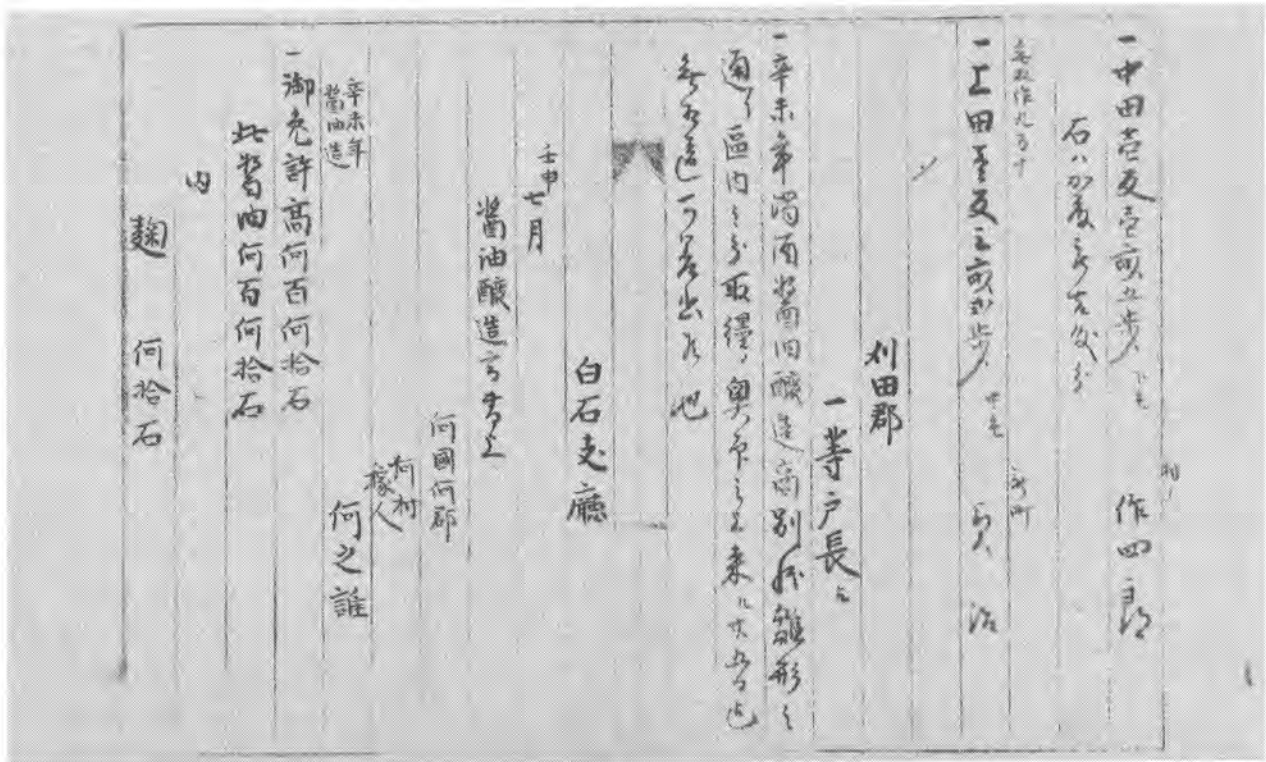 一中田壱反壱畝九歩
作四郎
一上田壱反三畝
治
刈田郡
一等戸長
一辛未年濁酒醤油醸造高別紙雛形之
通り區内之分取纏、奥印之上来ル廿五日迄
無相違可差出候也
白石支廳
壬申七月
醤油醸造高書上
何國何郡
何村
稼人
何之誰
辛未年
醤油造
一御免許高何百何拾石
此醤油何百何拾石
内
麹 何拾石